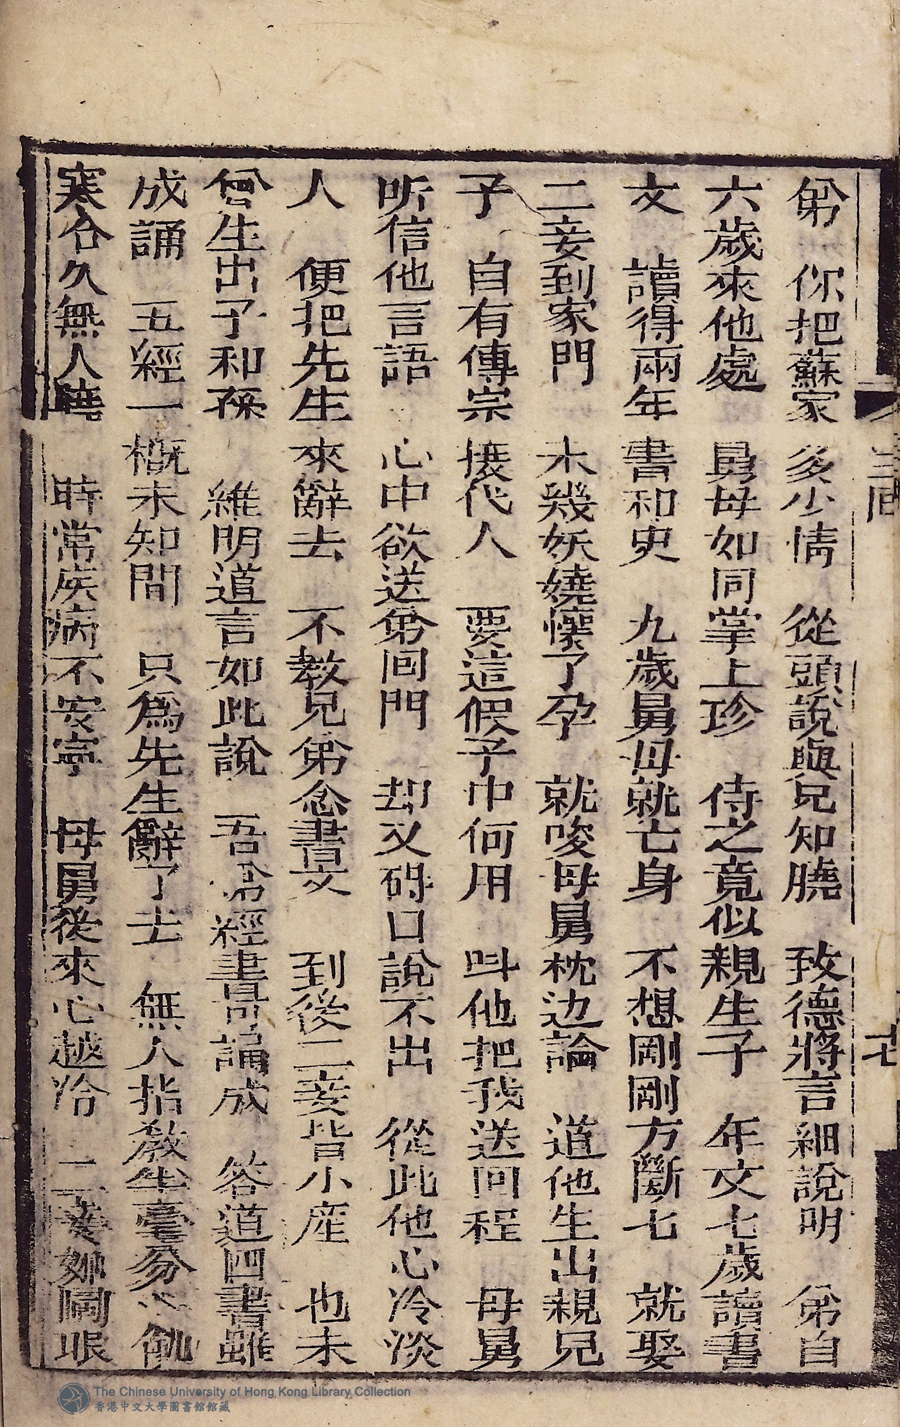 弟　你把蘇家多少情　從頭說與兄知曉　致德將言細說明　弟自
六歲來他處　舅母如同掌上珍　侍之竟似親生子　年交七歲讀書
文　讀得兩年書和史　九歲舅母就亡身　不想剛剛方斷七　就娶
二妾到家門　未幾妖嬈懷了孕　就唆母舅枕边論　道他生出親兒
子　自有傳宗接代人　要這假子中何用　呌他把我送回程　母舅
听信他言語　心中欲送弟回門　却又碍口說不出　從此他心冷淡
人　便把先生來辭去　不教兄弟念書文　到後二妾皆小産　也未
曾生出子和孫　維明道言如此說　吾弟經書可誦成　答道四書雖
成誦　五經一概未知聞　只爲先生辭了去　無人指教半毫分　飢
寒合久無人曉　時常疾病不安寧　母舅後來心越冷　二妾如同眼
三回
七
The Chinese University of Hong Kong Library Collection
香港中文大學圖書館館藏